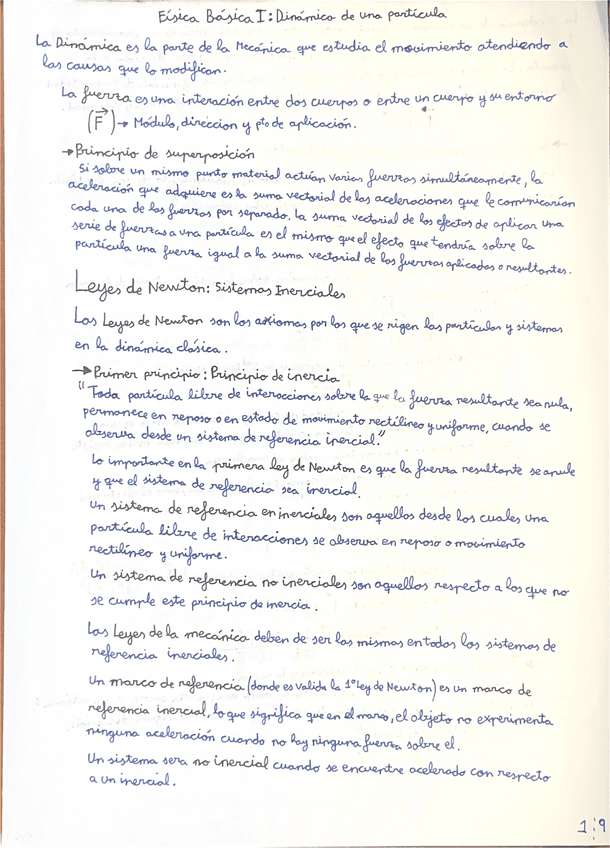 Física Básica I: Dinámica de una partícula
La Dinámica es la parte de la Mecánica que estudia el movimiento atendiendo a
las causas que lo modifican.
La fuerza es una interación entre dos cuerpos o entre un cuerpo y su entorno
(F⃗)→ Módulo, direccion y pto de aplicación.
→Principio de superposición
Si sobre un mismo punto material actúan varias fuerzas simultáneamente, la
aceleración que adquiere es la suma vectorial de las aceleraciones que le comunicarían
cada una de las fuerzas por separado. La suma vectorial de los efectos de aplicar una
serie de fuerzas a una partícula es el mismo que el efecto que tendría sobre la
partícula una fuerza igual a la suma vectorial de las fuerzas aplicadas o resultantes.
Leyes de Newton: Sistemas Inerciales
Las Leyes de Newton son los axiomas por los que se rigen las partículas y sistemas
en la dinámica clásica.
→Primer principio: Principio de inercia
"Toda partícula libre de interacciones sobre la que la fuerza resultante sea nula,
permanece en reposo o en estado de movimiento rectilíneo y uniforme, cuando se
observa desde un sistema de referencia inercial."
Lo importante en la primera ley de Newton es que la fuerza resultante se anule
y que el sistema de referencia sea inercial.
Un sistema de referencia en inerciales son aquellos desde los cuales una
partícula libre de interacciones se observa en reposo o movimiento
rectilíneo y uniforme.
Un sistema de referencia no inerciales son aquellos respecto a los que no
se cumple este principio de inercia.
Las Leyes de la mecánica deben de ser las mismas en todos los sistemas de
referencia inerciales.
Un marco de referencia (donde es valida la 1º ley de Newton) es un marco de
referencia inercial, lo que significa que en el marco, el objeto no experimenta
ninguna aceleración cuando no hay ninguna fuerza sobre el.
Un sistema sera no inercial cuando se encuentre acelerado con respecto
a un inercial.
1:9